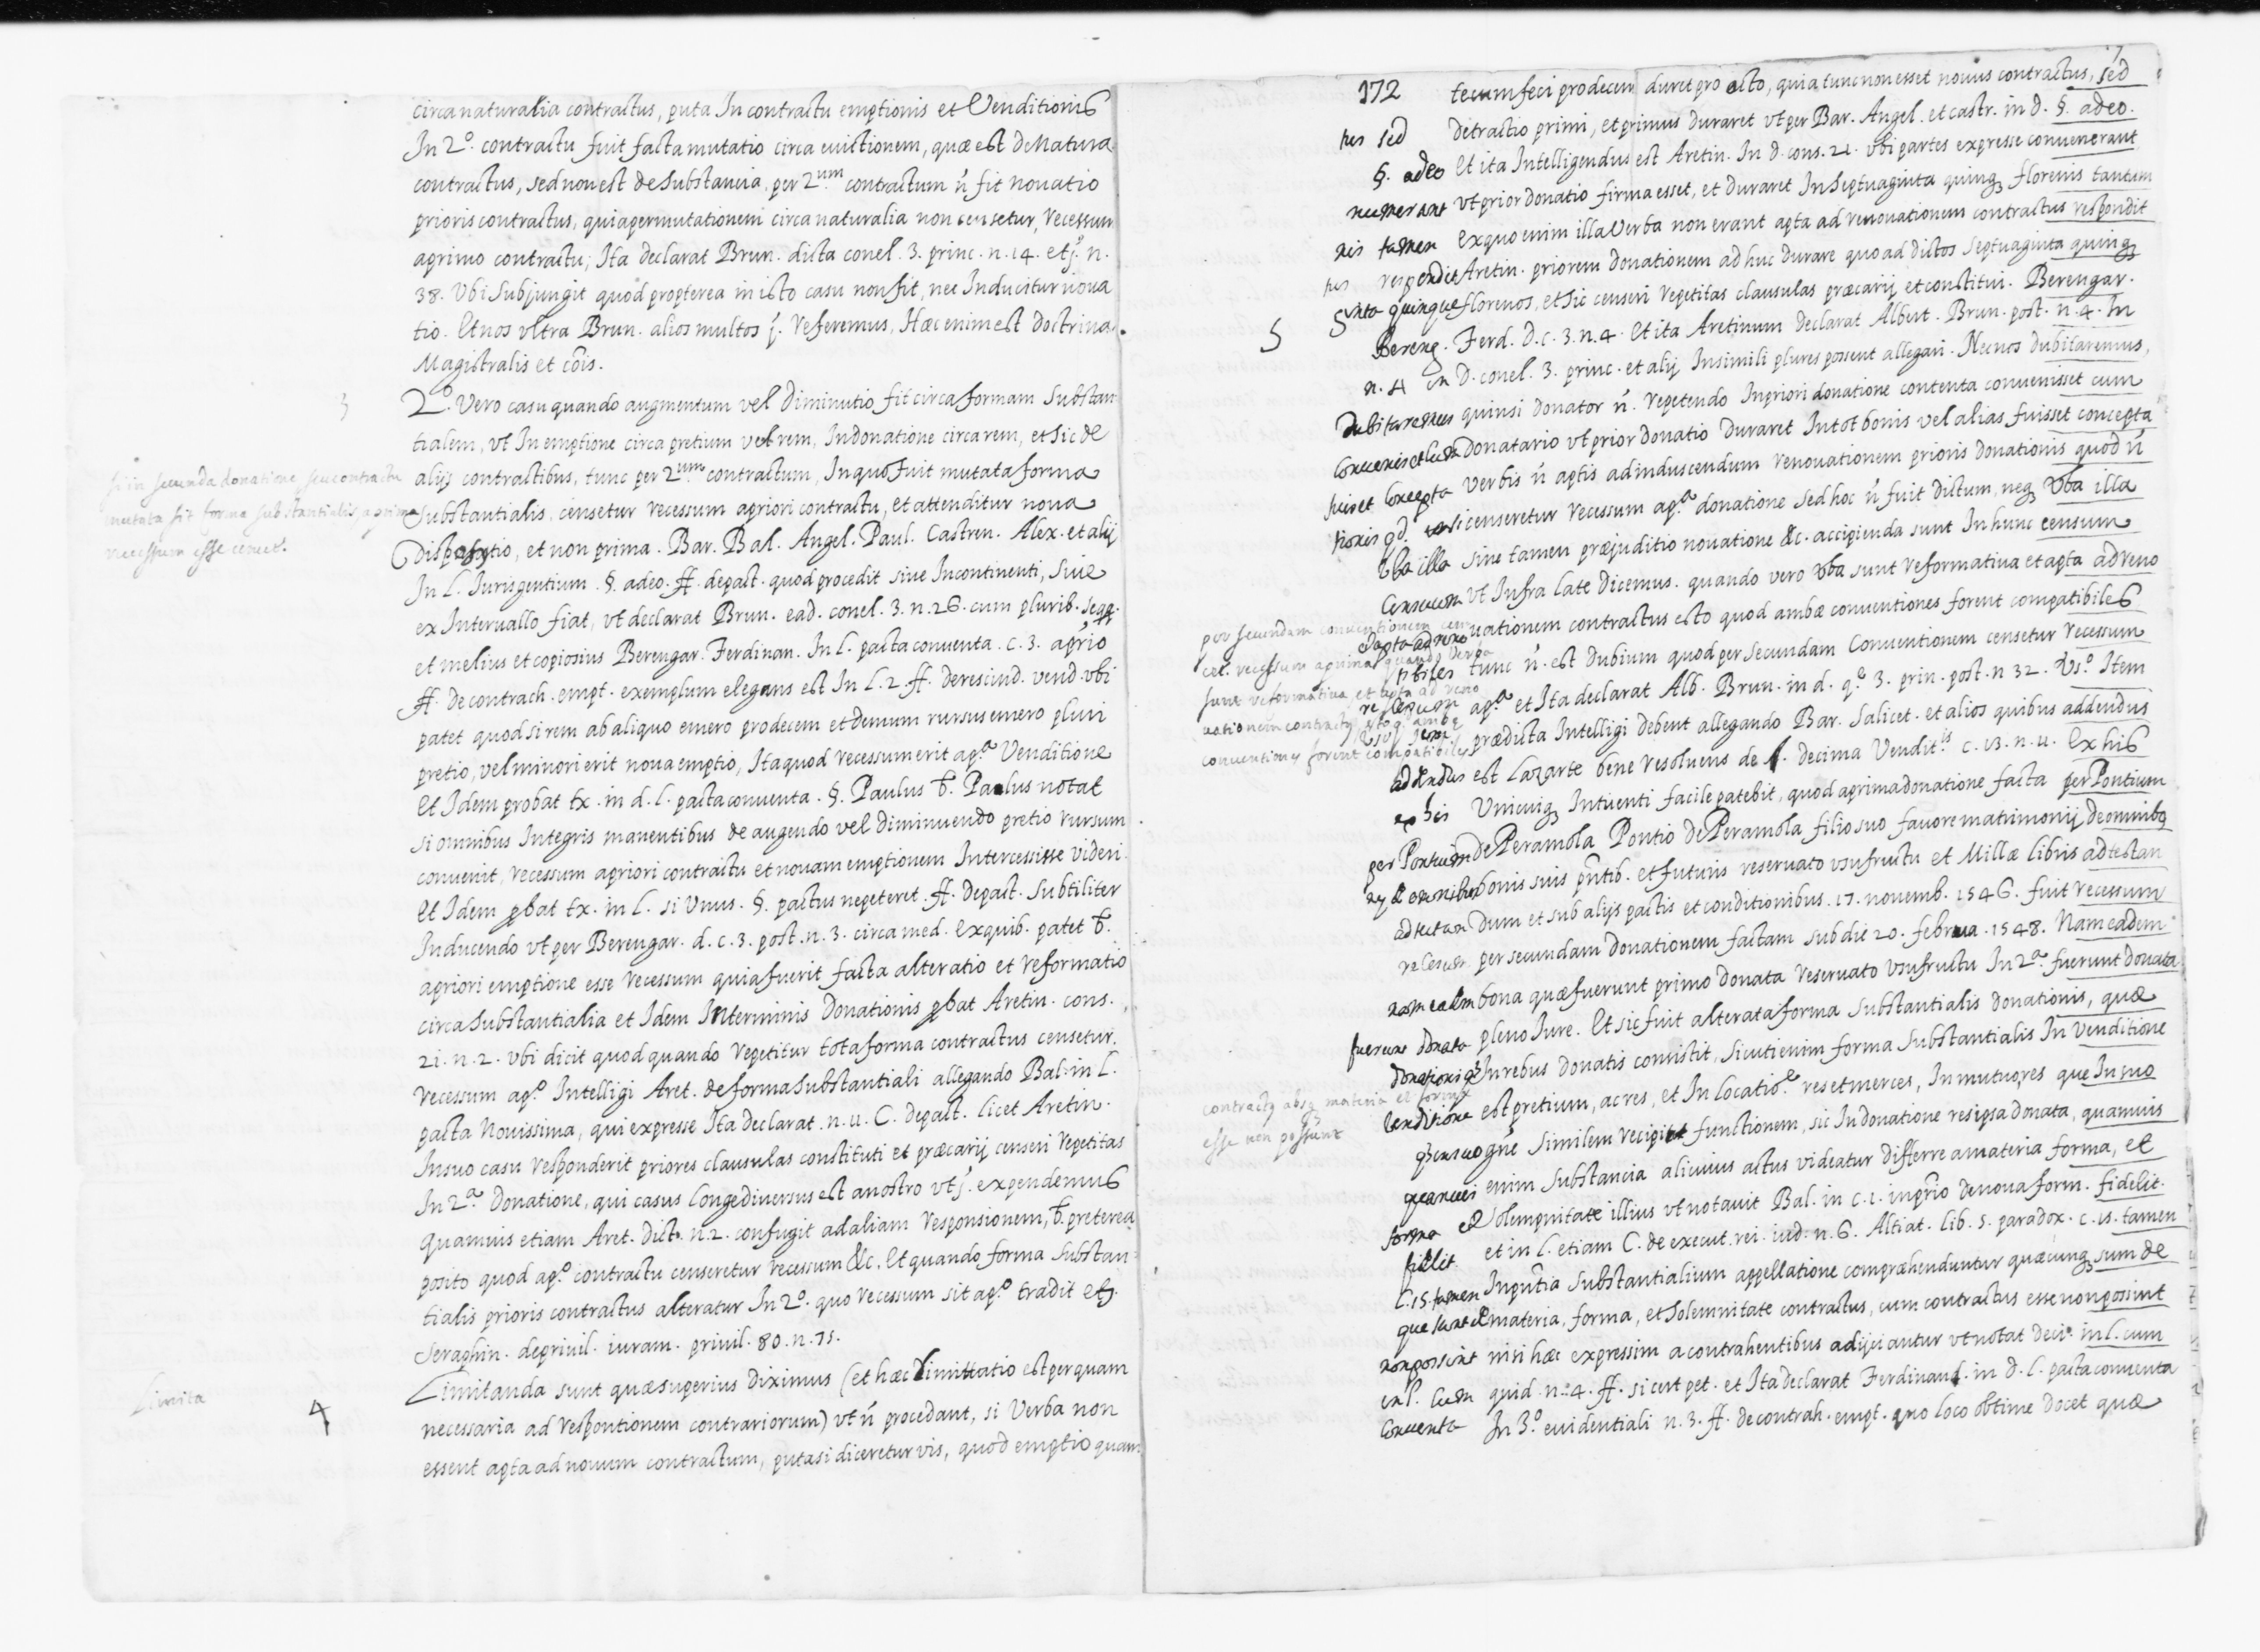 circa naturalia contractus, puta In contractu emptionis et Venditionis
In 2º. contractu fuit facta mutatio circa euictionem, quæ est de Natura
contractus, sed non est de substancia, per 2um. contractum ñ fit nouatio
prioris contractus, quia per mutationem circa naturalia non censetur, recessum
a primo contractu; Ita declarat Brun. dicta concl. 3. princ. n. 14. et j. n.
38. Vbi Subjungit quod propterea in isto casu non fit, nec Inducitur noua
tio. Et nos vltra Brun. alios multos j. referemus, Hæc enim est doctrina
Magistralis et cõis.
3
2º. Vero casu quando augmentum vel Diminutio fit circa formam substan
tialem, vt In emptione circa pretium vel rem, In donatione circa rem, et sic de
alijs contractibus, tunc per 2um. contractum, In quo fuit mutata forma
substantialis, censetur recessum a priori contractu, et attenditur noua
dispositio, et non prima. Bar. Bal. Angel. Paul. Castren. Alex. et alij
si in secunda donatione seu contractu
mutata sit forma substantialis a prima
recessum esse censet.
In l. Jurisgentium §. adeo. ff. de pact. quod procedit siue Incontinenti, siue
ex Interuallo fiat, vt declarat Brun. ead. concl. 3. n. 26. cum plurib. seqq.
et melius et copiosius Berengar. Ferdinan. In l. pacta conuenta. c. 3. a prĩo
ff. de contrach. empt. exemplum elegans est In l. 2. ff. de rescind. vend. vbi
patet quod si rem ab aliquo emero pro decem et demum rursus emero pluri
pretio, vel minori erit noua emptio, Ita quod recessum erit a pª. Venditione
Et Idem probat tx. in d. l. pacta conuenta. §. Paulus ƀ. Paulus notat
si omnibus Integris manentibus de augendo vel diminuendo pretio rursum
conuenit, recessum a priori contractu et nouam emptionem Intercessisse videri.
Et Idem pbat tx. in l. si Vnus. §. pactus ne peteret. ff. de pact. subtiliter
Inducendo vt per Berengar. d. c. 3. post. n. 3. circa med. ex quib. patet ƀ.
a priori emptione esse recessum quia fuerit facta alteratio et reformatio
circa substantialia et Idem In terminis Donationis pbat Aretin. cons.
21. n. 2. vbi dicit quod quando repetitur tota forma contractus censetur.
recessum a pº. Intelligi Aret. de forma substantiali allegando Bal. in l.
pacta Nouissima, qui expresse Ita declarat. n. 11. C. de pact. licet Aretin.
In suo casu responderit priores clausulas constituti et præcarij censeri repetitas
In 2ª. Donatione, qui casus longe diuersus est a nostro vt j. expendemus
quamuis etiam Aret. dict. n. 2. confugit ad aliam responsionem, ƀ. preterea
posito quod a pº. contractu censeretur recessum &c. Et quando forma substan-
tialis prioris contractus alteratur In 2º. quo recessum sit a pº. tradit etj.
Seraphin. de priuil. iuram. priuil. 80. n. 75.
Limita
4
Limitanda sunt quæ superius diximus (et hæc Limitatio est perquam
necessaria ad responsionem contrariorum) vt ñ procedant, si verba non
essent apta ad nouum contractum, puta si diceretur vis, quod emptio quam
172
tecum feci pro decem duret pro octo, quia tunc non esset nouus contractus, sed
detractio primi, et primus duraret vt per Bar. Angel. et castr. in d. §. adeo.
Et ita Intelligendus est Aretin. In d. cons. 21. vbi partes expresse conuenerant
vt prior donatio firma esset, et duraret In Septuaginta quinq florenis tantum
ex quo enim illa verba non erant apta ad renouationem contractus respondit
Aretin. priorem donationem adhuc durare quo ad dictos septuaginta quinq
5
florenos, et sic censeri repetitas clausulas præcarij et constitui. Berengar.
Ferd. D. c. 3. n. 4. Et ita Aretinum declarat Albert. Brun. post. n. 4. In
D. concl. 3. princ. et alij In simili plures possent allegari. Nec nos dubitaremus,
quin si donator ñ. repetendo In priori donatione contenta conuenisset cum
donatario vt prior donatio duraret In tot bonis vel alias fuisset concepta
verbis ñ aptis ad inducendum renouationem prioris donationis quod ñ
censeretur recessum a pª. donatione sed hoc ñ fuit dictum, neq vba illa
sine tamen præjuditio nouatione &c. accipienda sunt In hunc censum
vt Infra late dicemus. quando vero vba sunt reformatiua et apta ad reno
uationem contractus esto quod ambæ conuentiones forent compatibiles
tunc ñ. est dubium quod per secundam Conuentionem censetur recessum
a pª. et Ita declarat Alb. Brun. in d. qº. 3. prin. post. n 32. Vsº. Item
prædicta Intelligi debent allegando Bar. Salicet. et alios quibus addendus
est Lazarte bene resoluens de decima Vendit.is c. 13. n. 11. Ex his
Vnicuiq Intuenti facile patebit, quod a prima donatione facta per Pontium
de Peramola Pontio de Peramola filio suo fauore matrimonij de omnibq
bonis suis pñtib. et futuris reseruato vsufructu et Millæ libris ad testan
dum et sub alijs pactis et conditionibus. 17. nouemb. 1546. fuit recessum
per secundam donationem factam sub die 20. februa. 1548. Nam eadem
bona quæ fuerunt primo donata reseruato vsufructu In 2ª. fuerunt donata
pleno Iure. Et sic fuit alterata forma substantialis donationis, quæ
In rebus donatis consistit, sicuti enim forma substantialis In Venditione
est pretium, ac res, et In locatioe res et merces, In mutuo, res que In suo
gñe similem recipit functionem, sic In donatione res ipsa donata, quamuis
enim substancia alicuius actus videatur differre a materia forma, et
solempnitate illius vt notauit Bal. in c. 1. in prĩo de noua form. fidelit.
et in l. etiam C. de execut. rei. iud. n. 6. Altiat. lib. 5. paradox. c. 15. tamen
In pñtia substantialium appellatione compræhenduntur quæcunq sum de
materia, forma, et solemnitate contractus, cum contractus esse non possint
nisi hæc expressim a contrahentibus adijciantur vt notat deci. in l. cum
quid. n. 4. ff. si cert pet. et Ita declarat Ferdinand. in d. l. pacta conuenta
In 3º. euidentiali n. 3. ff. de contrah. empt. quo loco obtime docet quæ
per secundam conuentionem cen
cet. recessum a prima quando verba
sunt reformatiua et apta ad reno
uationem contractq
conuentiones forent compatibiles
contractq absq materia et forma
esse non possunt